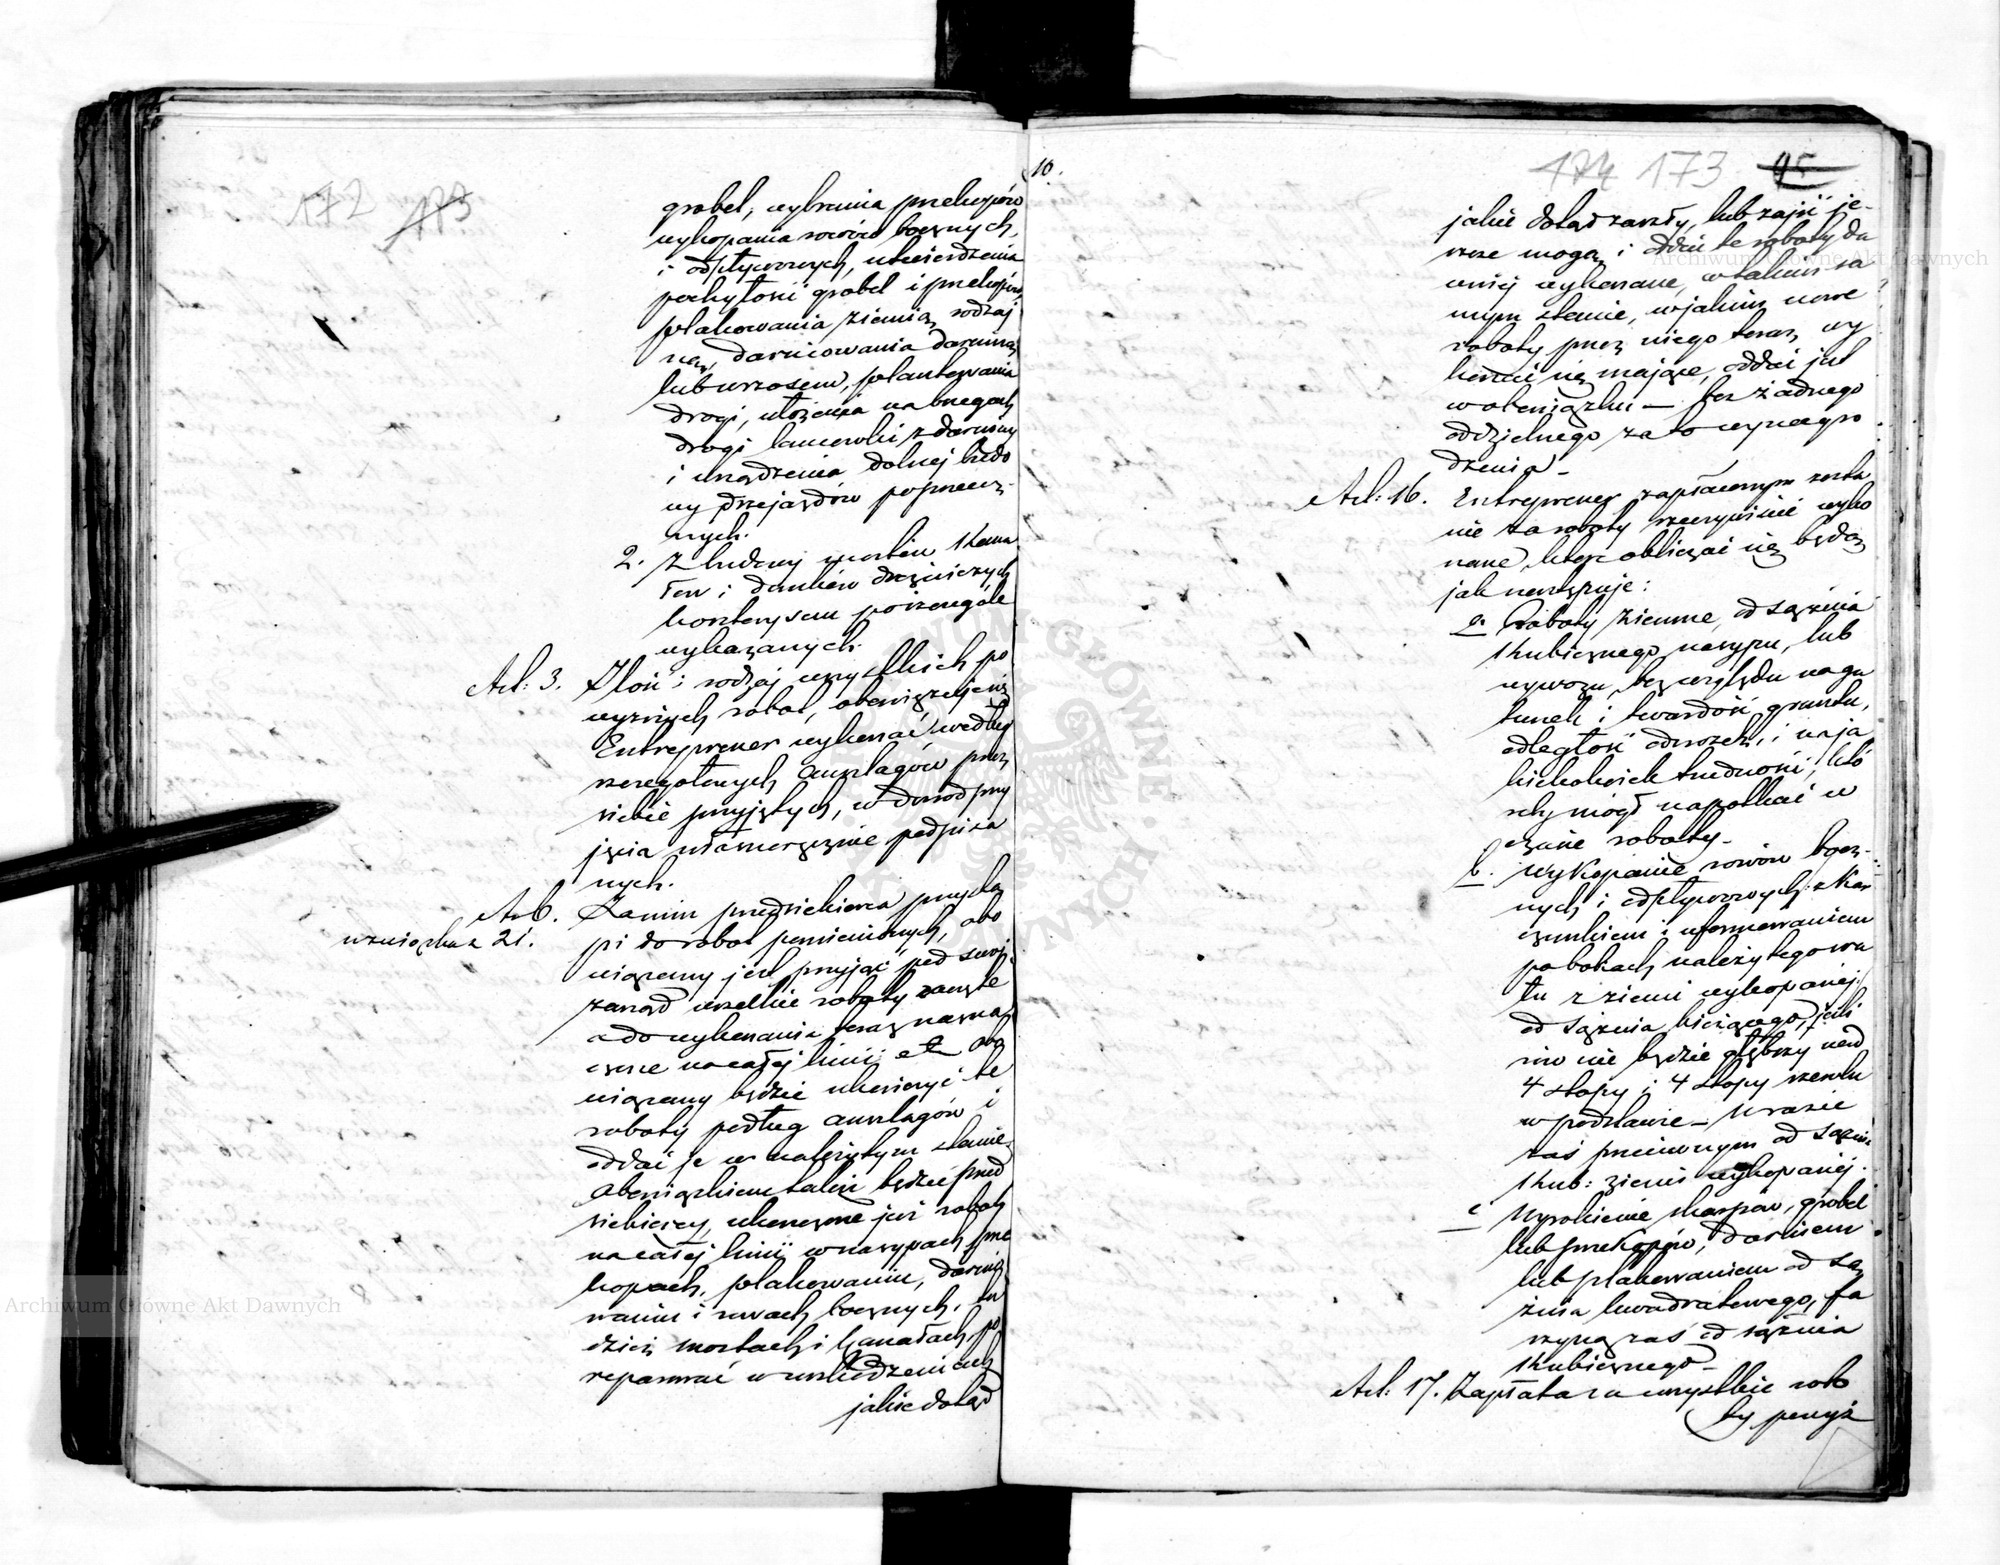 172 173
grobel, wybrania przekopów
wykopania rowów bocznych,
i odpływowych, utwierdzenia
pochyłości grobel i przekopów
plakowania ziemią rodzaj
ną, darniowania darniną
lub wrzosem, plantowania
drogi, ułożenia na brzegach
drogi ławeczki z darniny
i urządzenia dolnej budo
wy przejazdów poprzecz-
nych.
2. Z budowy mostów kana
łów i domków drożniczych
kosztorysem poszczególe
wykazanych.
Art: 3. Ilość i rodzaj wszystkich po
wyższych robot, obowiązuje się
Entreprener wykonać według
szczegółowych anszlagów przez
siebie przyjętych, w dowód przy
jęcia własnoręcznie podpisa
nych.
Art 6. Zanim przedsiębiorca przystą
w związku z 21. pi do robot pomienionych, obo
wiązany jest przyjąć pod swój
zarząd wszelkie roboty zaczęte
a do wykonania
na całej linii; obo
wiązany będzie ukończyć te
roboty podług anszlagów i
oddać je w należytym stanie,
Obowiązkiem także będzie przed
siębiercy, ukończone już roboty
na całej linii w nasypach, prze
kopach, plakowaniu, darnio
waniu i rowach bocznych, tu
dzież mostach i kanałach po
reparować w uszkodzeniach
jakie dotąd
10.
174 173 95
jakie dotąd zaszły, lub zajść je-
szcze mogą i oddać te roboty da
wniej wykonane, w takim sa
mym stanie, w jakim nowe
roboty przez niego teraz wy
konać się mające, oddać jest
w obowiązku — bez żadnego
oddzielnego za to wynagro
dzenia —
Art: 16. Entreprener zapłaconym zosta
nie za roboty rzeczywiście wyko
nane, które obliczać się będą
jak następuje:
a. Roboty ziemne, od sążnia
kubicznego nasypu, lub
wywozu, bez względu na ga
tunek i twardość gruntu,
odległość odwozu, i na ja
kiekolwiek trudności, któ
reby mógł napotkać w
czasie roboty.
b. Wykopanie rowów bocz-
nych i odpływowych z
i uformowaniem
po bokach należytego wa
łu z ziemi wykopanej:
od sążnia bieżącego, jeśli
rów nie będzie głębszy nad
4 stopy i 4 stopy szeroki
w podstawie — W razie
zaś przeciwnym od sążnia
kub: ziemi wykopanej.
c Wyrobienie skarpów, grobel
lub przekopów, darniem
lub plakowaniem od są
żnia kwadratowego, fa
szyną zaś od sążnia
kubicznego —
Art: 17. Zapłata za wszystkie robo
ty powyż
Archiwum Główne Akt Dawnych
Archiwum Główne Akt Dawnych